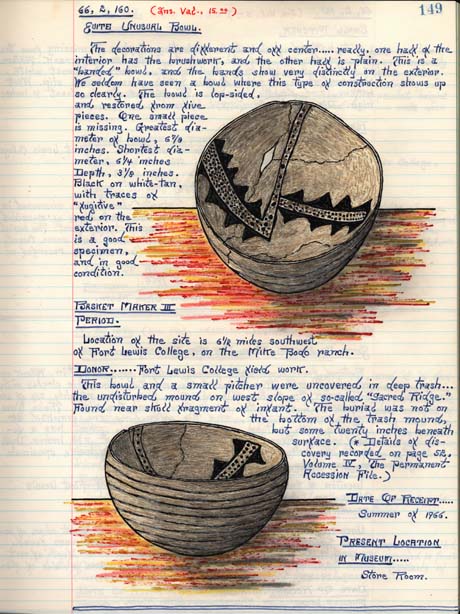 66, 2, 160. (Ins. Val., 15.00) 149
Quite Unusual Bowl.
The decorations are different and off center.... really, one half of the
interior has the brushwork, and the other half is plain. This is a
"banded" bowl, and the bands show very distinctly on the exterior.
We seldom have seen a bowl where this type of construction shows up
so clearly. The bowl is lop-sided,
and restored from five
pieces. One small piece
is missing. Greatest dia-
meter of bowl,
inches. Shortest dia-
meter, 6 1/4 inches
Depth, inches.
Black on white-tan,
with traces of
"fugitive"
red on the
exterior. This
is a good
specimen,
and in good
condition.
Basket Maker III
Period.
Location of the site is miles southwest
of Fort Lewis College, on the Mike Bodo ranch.
Donor.......Fort Lewis College field work.
This bowl and a small pitcher were uncovered in deep trash...
the undisturbed mound on west slope of so-called "Sacred Ridge."
Found near skull fragment of infant. The burial was not on
the bottom of the trash mound,
but some twenty inches beneath
surface. (* Details of dis-
covery recorded on page 52,
Volume IV, The Permanent
Accession File.)
Date Of Receipt.....
Summer of 1966.
Present Location
in Museum.....
Store Room.